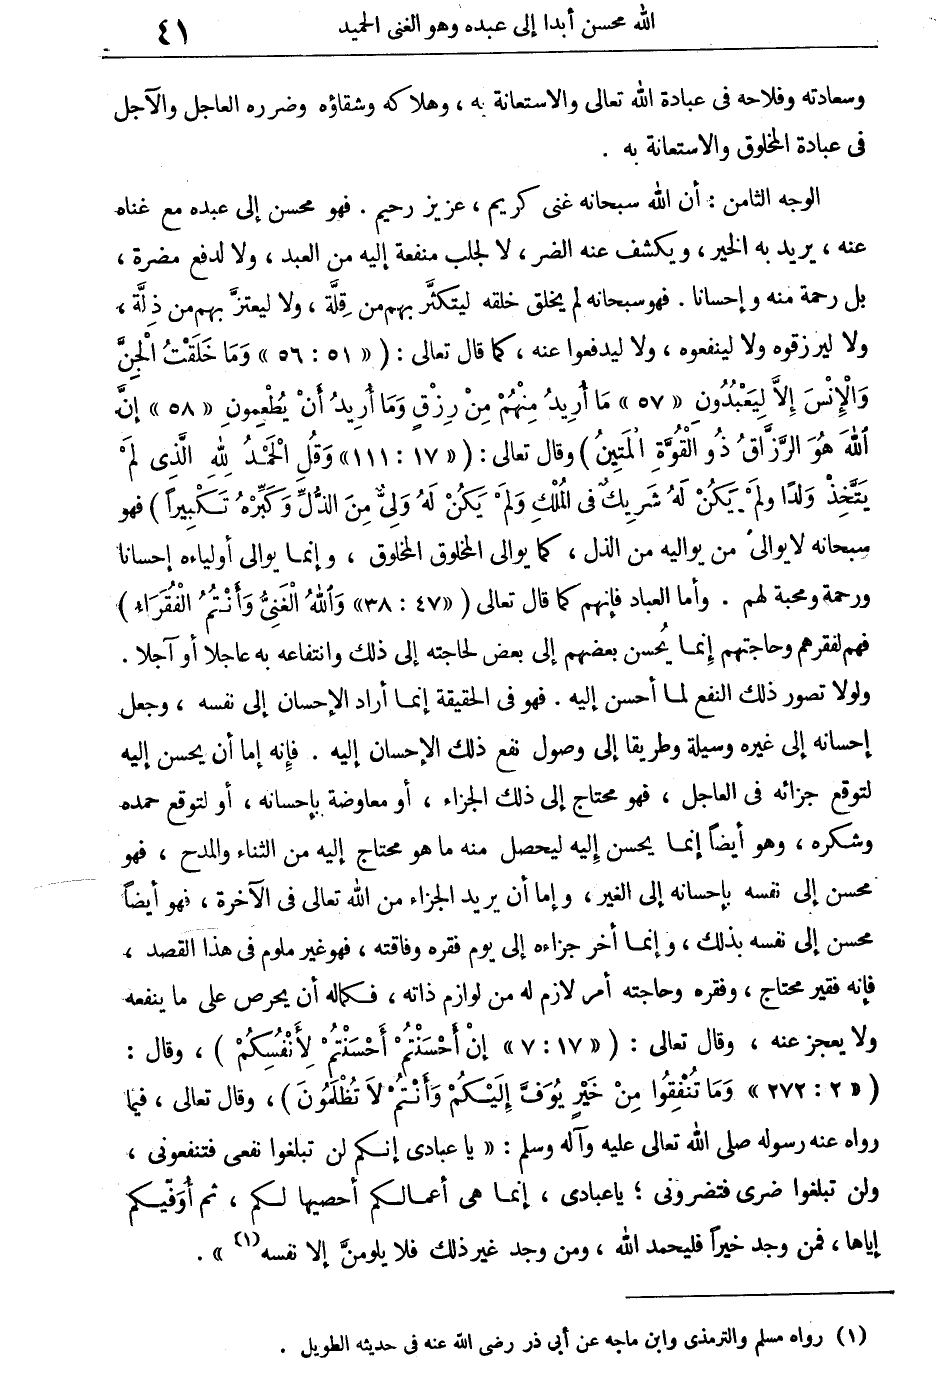 الله محسن أبدا إلى عبده وهو الغنى الحميد ٤١
وسعادته وفلاحه فى عبادة الله تعالى والاستعانة به ، وهلاكه وشقاؤه وضرره العاجل والآجل
فى عبادة المخلوق والاستعانة به .
الوجه الثامن : أن الله سبحانه غنى كريم ، عزيز رحيم . فهو محسن إلى عبده مع غناه
عنه ، يريد به الخير ، ويكشف عنه الضر ، لا لجلب منفعة إليه من العبد ، ولا لدفع مضرة ،
بل رحمة منه وإحسانا . فهو سبحانه لم يخلق خلقه ليتكثَّر بهم من قِلَّة ، ولا ليعتزَّ بهم من ذِلَّة ،
ولا ليرزقوه ولا لينفعوه ، ولا ليدفعوا عنه ، كما قال تعالى : ( « ٥١ : ٥٦ » وَمَا خَلَقْتُ الْجِنَّ
وَالْإِنْسَ إِلاَّ لِيَعْبُدُونِ « ٥٧ » مَا أُرِيدُ مِنْهُمْ مِنْ رِزْقٍ وَمَا أُرِيدُ أَنْ يُطْعِمُونِ « ٥٨ » إِنَّ
ٱللهَ هُوَ الرَّزَّاقُ ذُو الْقُوَّةِ الْمَتِينُ ) وقال تعالى : ( « ١٧ : ١١١ » وَقُلِ الْحَمْدُ لِلهِ الَّذِى لَمْ
يَتَّخِذْ وَلَدًا وَلَمْ يَكُنْ لَهُ شَرِيكٌ فى الْمُلْكِ وَلَمْ يَكُنْ لَهُ وَلِىٌّ مِنَ الذُّلِّ وَكَبِّرْهُ تَكْبِيراً ) فهو
سبحانه لا يوالى من يواليه من الذل ، كما يوالى المخلوق المخلوق ، وإنما يوالى أولياءه إحسانا
ورحمة ومحبة لهم . وأما العباد فإنهم كما قال تعالى ( « ٤٧ : ٣٨ » وَٱللهُ الْغَنِىُّ وَأَنْتُمُ الْفُقَرَاءِ )
فهم لفقرهم وحاجتهم إنما يُحسن بعضهم إلى بعض لحاجته إلى ذلك وانتفاعه به عاجلا أو آجلا .
ولولا تصور ذلك النفع لما أحسن إليه . فهو فى الحقيقة إنما أراد الإحسان إلى نفسه ، وجعل
إحسانه إلى غيره وسيلة وطريقا إلى وصول نفع ذلك الإحسان إليه . فإنه إما أن يحسن إليه
لتوقع جزائه فى العاجل ، فهو محتاج إلى ذلك الجزاء ، أو معاوضة بإحسانه ، أو لتوقع حمده
وشكره ، وهو أيضاً إنما يحسن إليه ليحصل منه ما هو محتاج إليه من الثناء والمدح ، فهو
محسن إلى نفسه بإحسانه إلى الغير ، وإما أن يريد الجزاء من الله تعالى فى الآخرة ، فهو أيضاً
محسن إلى نفسه بذلك ، وإنما أخر جزاءه إلى يوم فقره وفاقته ، فهو غير ملوم فى هذا القصد ،
فإنه فقير محتاج ، وفقره وحاجته أمر لازم له من لوازم ذاته ، فكماله أن يحرص على ما ينفعه
ولا يعجز عنه ، وقال تعالى : ( « ١٧ : ٧ » إِنْ أَحْسَنْتُمْ أَحْسَنْتُمْ لِأَنْفُسِكُمْ ) ، وقال :
( « ٢ : ٢٧٢ » وَمَا تُنْفِقُوا مِنْ خَيْرٍ يُوَفَّ إِلَيْكُمْ وَأَنْتُمْ لاَ تُظْلَمُونَ ) ، وقال تعالى ، فيما
رواه عنه رسوله صلى الله تعالى عليه وآله وسلم : « يا عبادى إنكم لن تبلغوا نفعى فتنفعونى ،
ولن تبلغوا ضرى فتضرونى ؛ ياعبادى ، إنما هى أعمالكم أحصيها لكم ، ثم أُوَفّيكم
إياها ، فمن وجد خيراً فليحمد الله ، ومن وجد غير ذلك فلا يلومنَّ إلا نفسه (١) » .
(١) رواه مسلم والترمذى وابن ماجه عن أبى ذر رضى الله عنه فى حديثه الطويل .